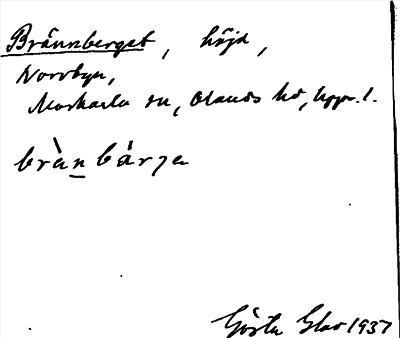 Brännberget, höjd,
Norrbyn,
Morkarla sn, Olands hd, Upps. l.
brànbárja
Gösta Glas 1937